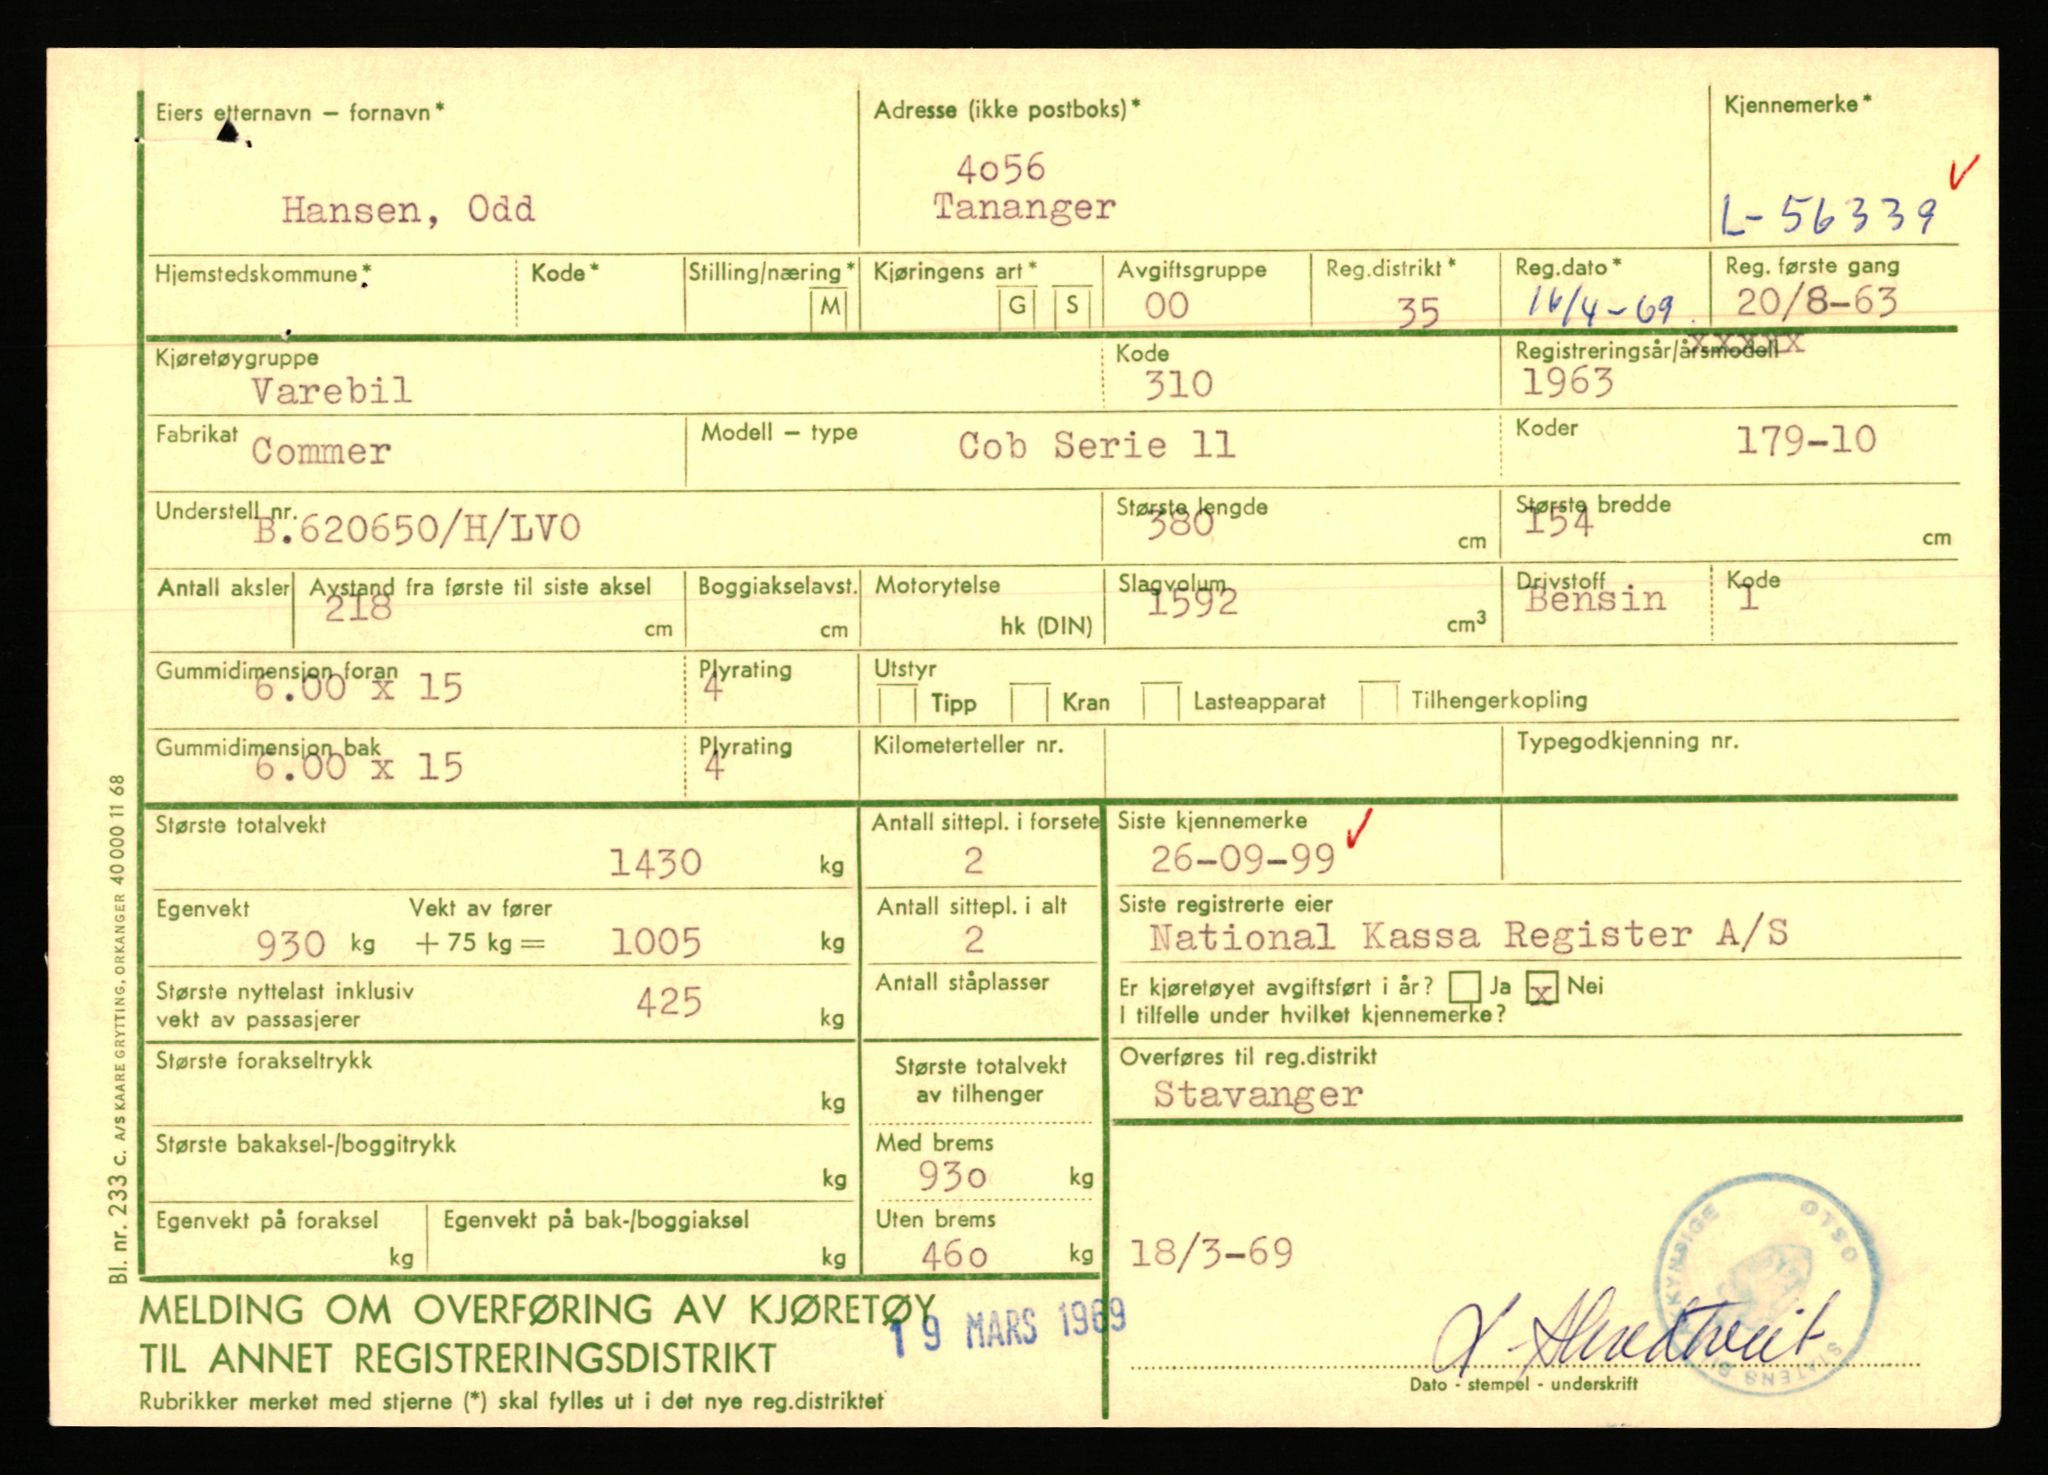 Eiers etternavn – fornavn*
Adresse (ikke postboks)*
Kjennemerke*
Hansen, Odd
4o56
Tananger
L-56339
Hjemstedskommune*
Kode*
Stilling/næring*
M
Kjøringens art*
G
S
Avgiftsgruppe
00
Reg.distrikt*
35
Reg.dato*
16/4-69
Reg. første gang
20/8-63
Kjøretøygruppe
Varebil
Kode
310
Registreringsår/årsmodell
xxxxx
1963
Fabrikat
Commer
Modell – type
Cob Serie 11
Koder
179-10
Understell nr.
B.620650/H/LVO
Største lengde
380
cm
Største bredde
154
cm
Antall aksler
Avstand fra første til siste aksel
218
cm
Boggiakselavst.
cm
Motorytelse
hk (DIN)
Slagvolum
1592
cm3
Drivstoff
Bensin
Kode
1
Gummidimensjon foran
6.00 x 15
Plyrating
4
Utstyr
Tipp
Kran
Lasteapparat
Tilhengerkopling
Gummidimensjon bak
6.00 x 15
Plyrating
4
Kilometerteller nr.
Typegodkjenning nr.
Største totalvekt
1430
kg
Antall sittepl. i forsete
2
Siste kjennemerke
26-09-99
Egenvekt
930 kg
Vekt av fører
+ 75 kg =
1005
kg
Antall sittepl. i alt
2
Siste registrerte eier
National Kassa Register A/S
Største nyttelast inklusiv
vekt av passasjerer
425
kg
Antall ståplasser
Er kjøretøyet avgiftsført i år? Ja x Nei
I tilfelle under hvilket kjennemerke?
Største forakseltrykk
kg
Største totalvekt
av tilhenger
Overføres til reg.distrikt
Stavanger
Største bakaksel-/boggitrykk
kg
Med brems
93o
kg
Egenvekt på foraksel
kg
Egenvekt på bak-/boggiaksel
kg
Uten brems
46o
kg
18/3-69
OSLO
STATENS
MELDING OM OVERFØRING AV KJØRETØY
TIL ANNET REGISTRERINGSDISTRIKT
19 MARS 1969
Rubrikker merket med stjerne (*) skal fylles ut i det nye reg.distriktet
Dato - stempel - underskrift
Bl. nr. 233 c. A/S KAARE GRYTTING, ORKANGER 40 000 11 68